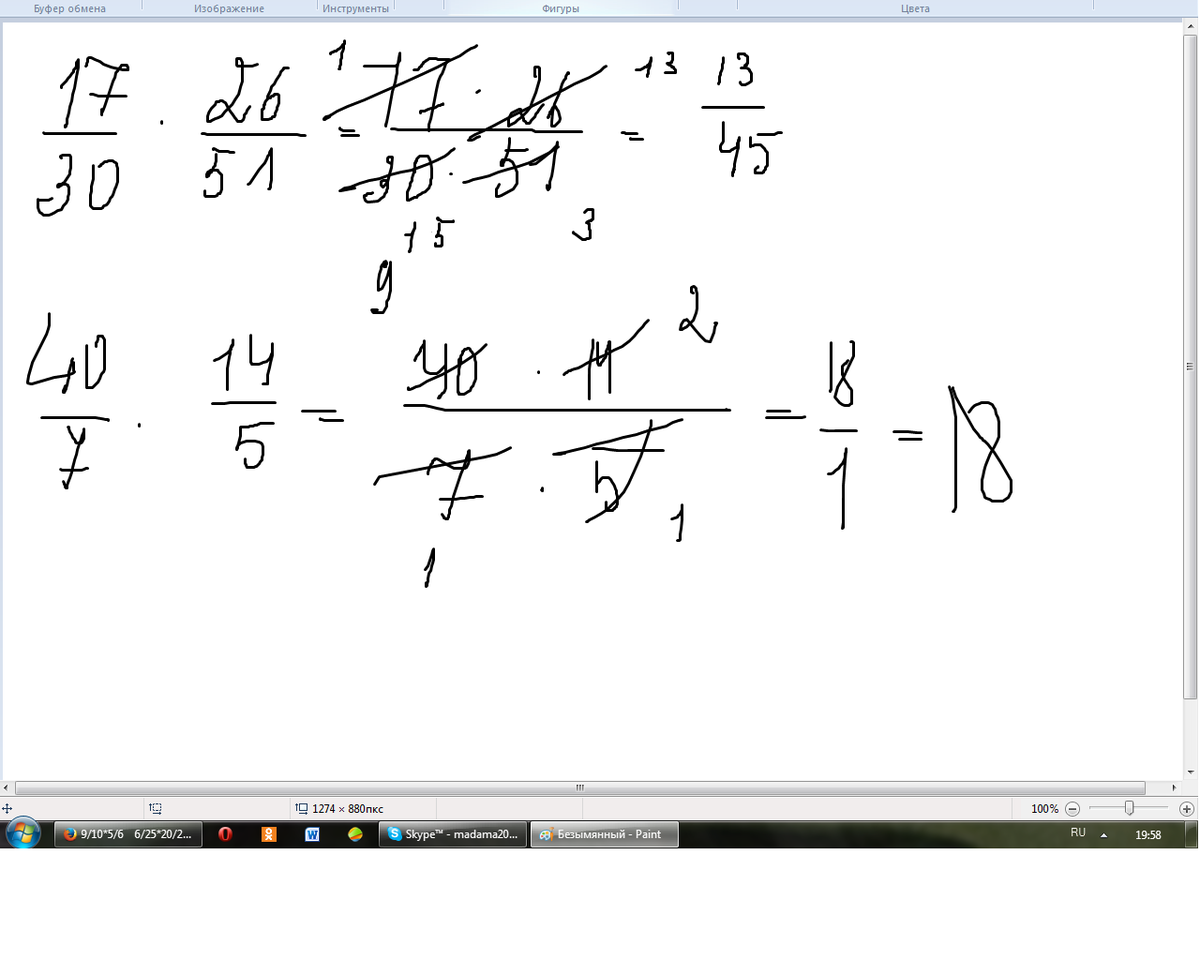 Буфер обмена Изображение Инструменты Фигуры Цвета
17/30 · 26/51 = 17 · 26 / 30 · 51 = 13/45
1 13
15 3
9 2
40/7 · 14/5 = 40 · 14 / 7 · 5 = 18/1 = 18
1 1
1274 × 880пкс 100%
9/10*5/6 6/25*20/2... Skype™ - madama20... Безымянный - Paint RU 19:58